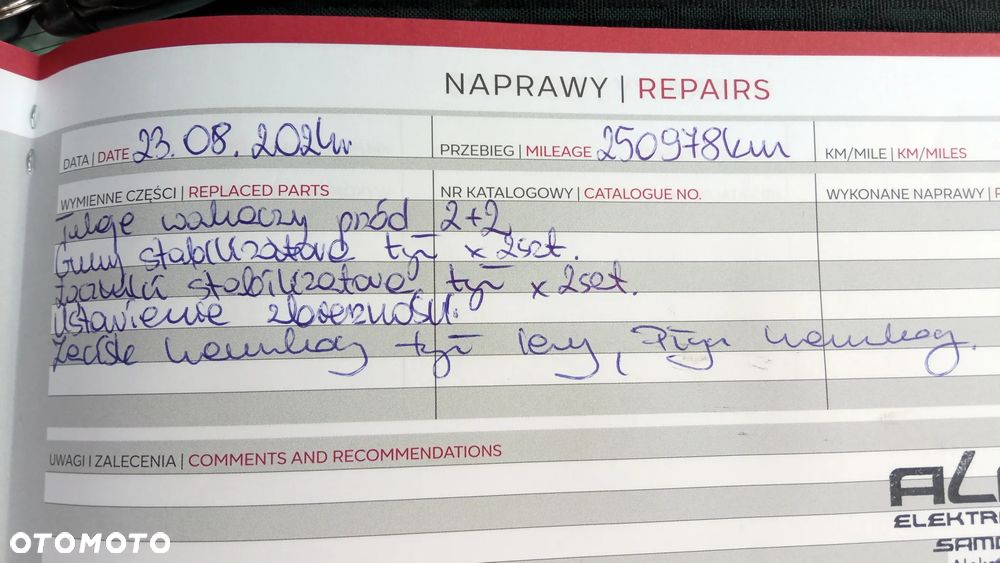 NAPRAWY | REPAIRS
DATA | DATE 23.08.2024r PRZEBIEG | MILEAGE 250978km KM/MILE | KM/MILES
WYMIENNE CZĘŚCI | REPLACED PARTS NR KATALOGOWY | CATALOGUE NO. WYKONANE NAPRAWY |
Tuleje wahaczy przód 2+2
Gumy stabilizatora tył x 2szt.
Łączniki stabilizatora tył x 2szt.
Ustawienie zbieżności.
Zacisk hamulcowy tył lewy, Płyn hamulcowy.
UWAGI I ZALECENIA | COMMENTS AND RECOMMENDATIONS
OTOMOTO